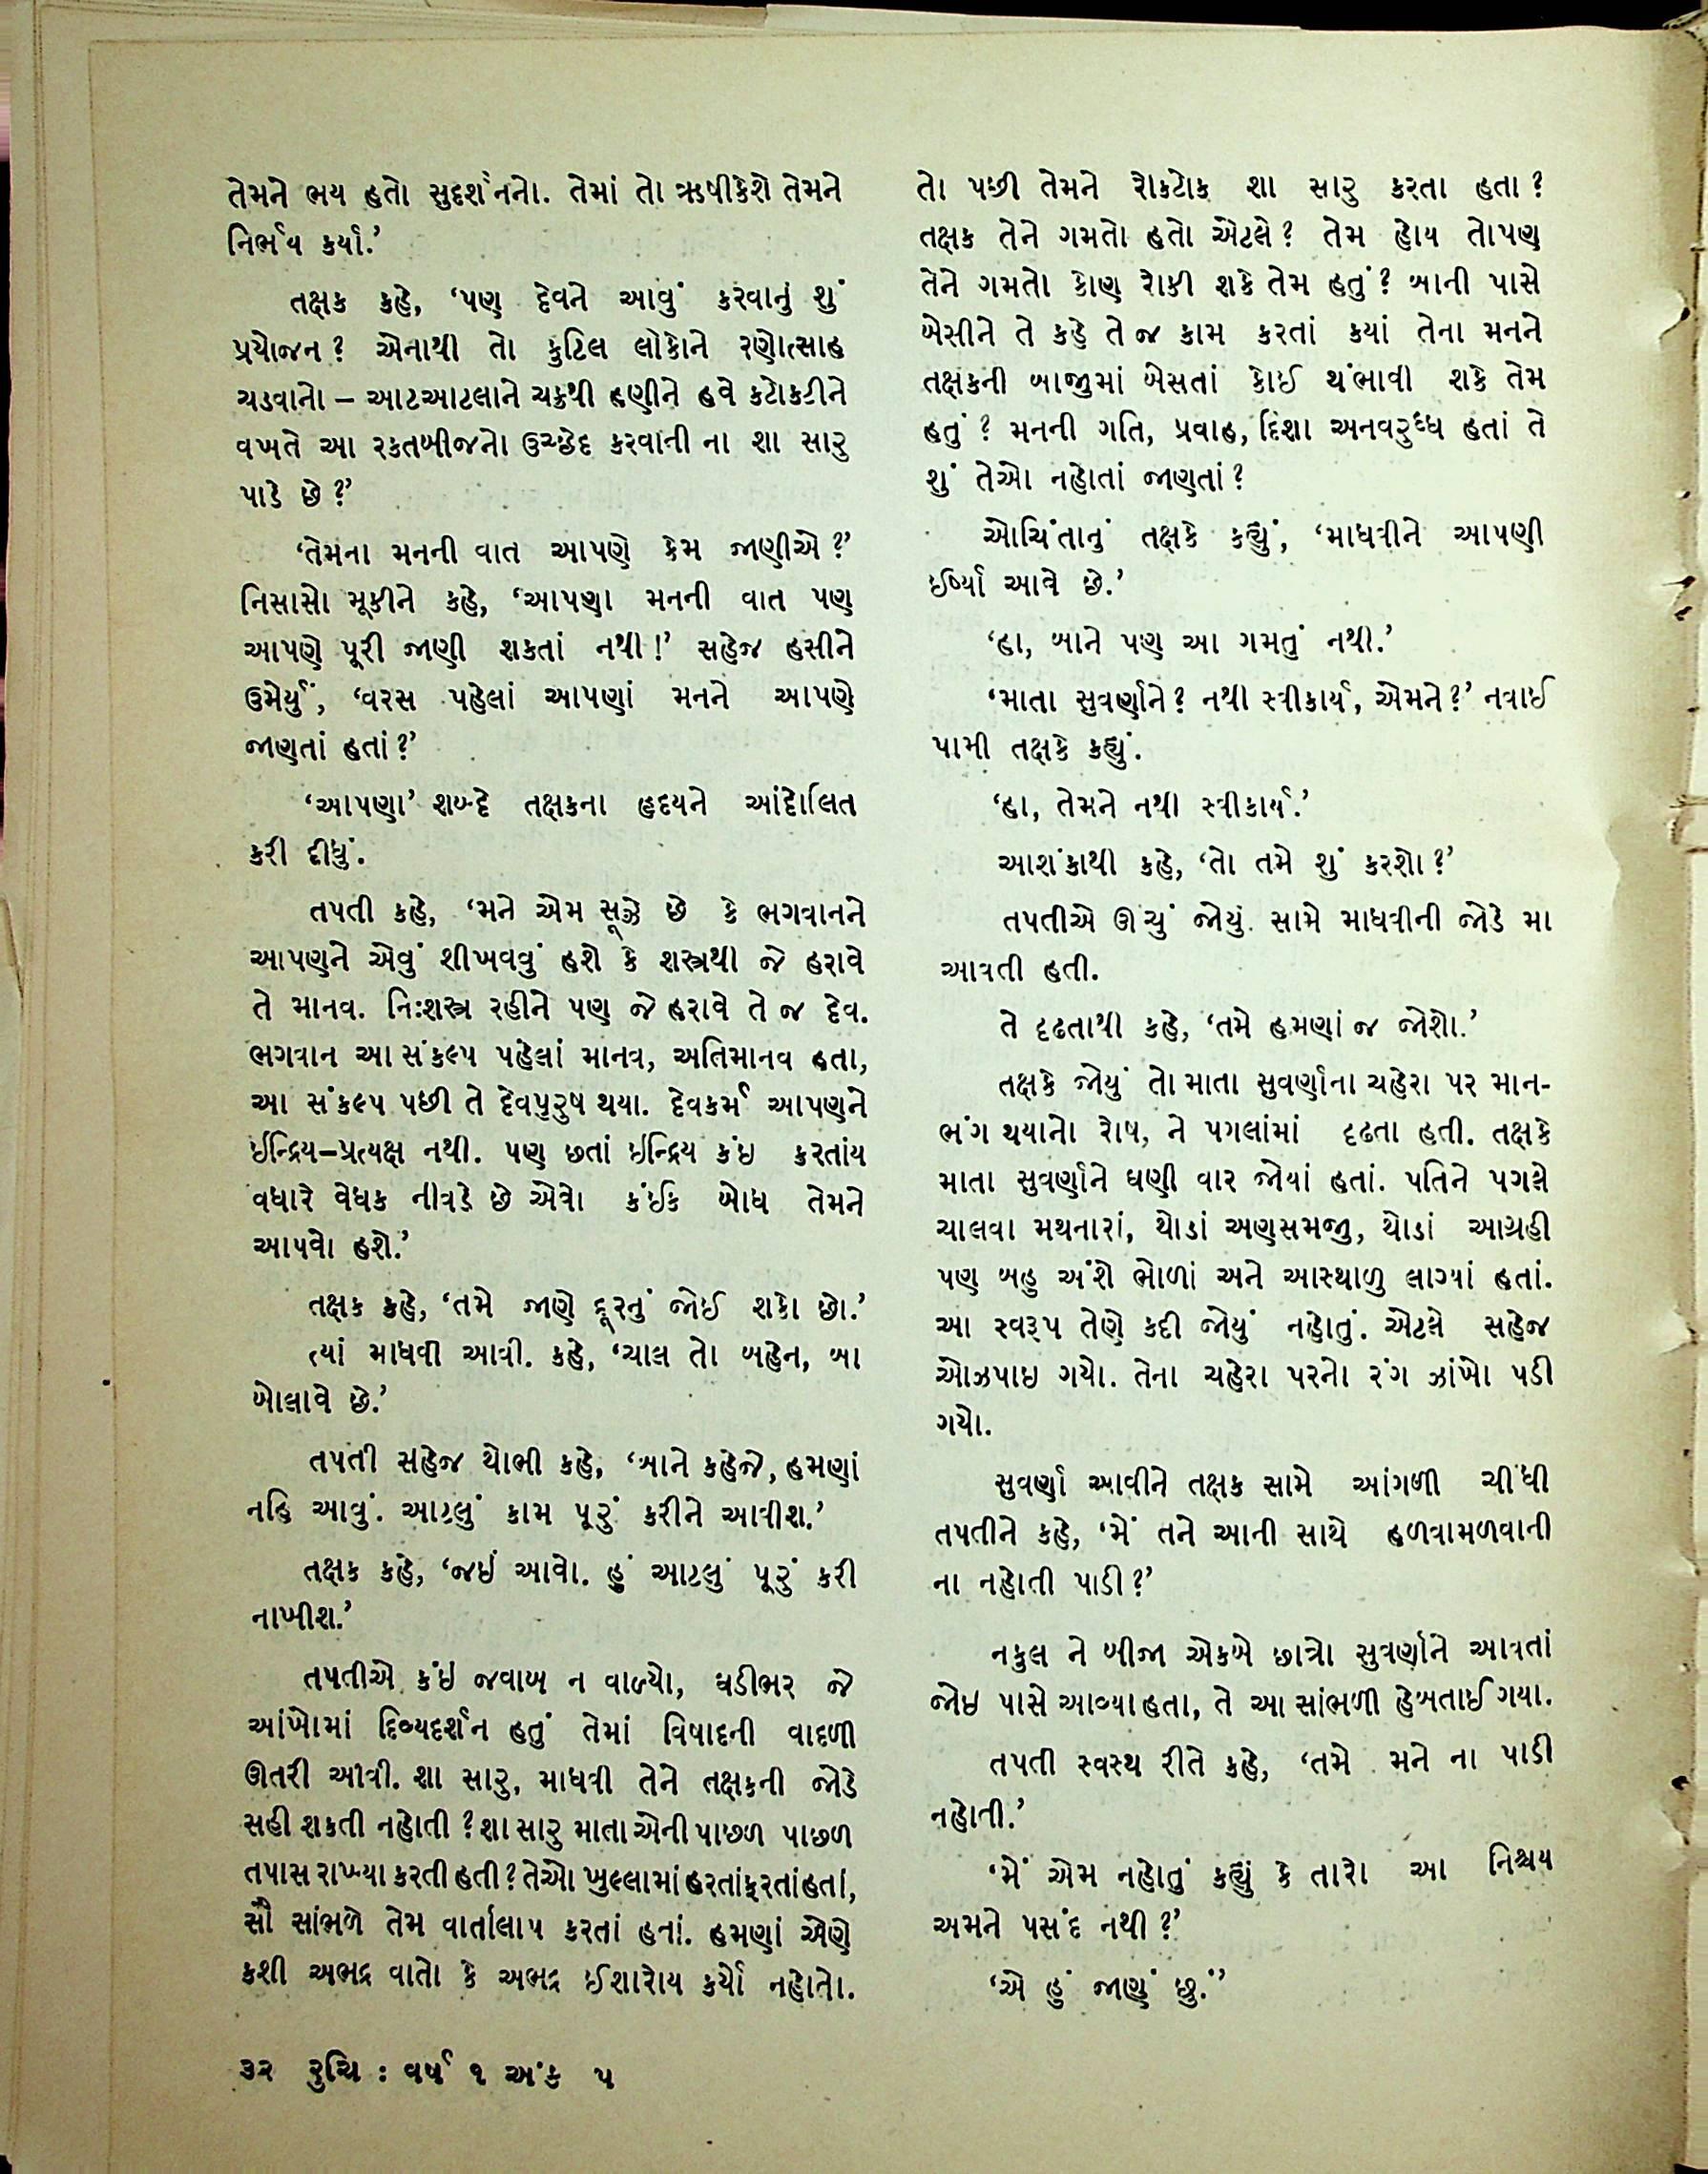 તેમને ભય હતો સુદર્શનનો. તેમાં તો ઋષીકેશે તેમને
નિર્ભય કર્યા.’
તક્ષક કહે, ‘પણ દેવને આવું કરવાનું શું
પ્રયોજન? એનાથી તો કુટિલ લોકોને રણોત્સાહ
ચડવાનો – આટઆટલાને ચક્રથી હણીને હવે કટોકટીને
વખતે આ રક્તબીજનો ઉચ્છેદ કરવાની ના શા સારુ
પાડે છે?’
‘તેમના મનની વાત આપણે કેમ જાણીએ?’
નિસાસો મૂકીને કહે, ‘આપણા મનની વાત પણ
આપણે પૂરી જાણી શકતાં નથી!’ સહેજ હસીને
ઉમેર્યું, ‘વરસ પહેલાં આપણાં મનને આપણે
જાણતાં હતાં?’
‘આપણા’ શબ્દે તક્ષકના હૃદયને આંદોલિત
કરી દીધું.
તપતી કહે, ‘મને એમ સૂઝે છે કે ભગવાનને
આપણને એવું શીખવવું હશે કે શસ્ત્રથી જે હરાવે
તે માનવ. નિઃશસ્ત્ર રહીને પણ જે હરાવે તે જ દેવ.
ભગવાન આ સંકલ્પ પહેલાં માનવ, અતિમાનવ હતા,
આ સંકલ્પ પછી તે દેવપુરુષ થયા. દેવકર્મ આપણને
ઈન્દ્રિય–પ્રત્યક્ષ નથી. પણ છતાં ઇન્દ્રિય કંઇ કરતાંય
વધારે વેધક નીવડે છે એવો કંઈક બોધ તેમને
આપવો હશે.’
તક્ષક કહે, ‘તમે જાણે દૂરનું જોઈ શકો છો.’
ત્યાં માધવી આવી. કહે, ‘ચાલ તો બહેન, બા
બોલાવે છે.’
તપતી સહેજ થોભી કહે, ‘બાને કહેજે, હમણાં
નહિ આવું. આટલું કામ પૂરું કરીને આવીશ.’
તક્ષક કહે, ‘જઇ આવો. હું આટલું પૂરું કરી
નાખીશ.’
તપતીએ કંઇ જવાબ ન વાળ્યો, ઘડીભર જે
આંખોમાં દિવ્યદર્શન હતું તેમાં વિષાદની વાદળી
ઊતરી આવી. શા સારુ, માધવી તેને તક્ષકની જોડે
સહી શકતી નહોતી? શા સારુ માતા એની પાછળ પાછળ
તપાસ રાખ્યા કરતી હતી? તેઓ ખુલ્લામાં હરતાંફરતાં હતાં,
સૌ સાંભળે તેમ વાર્તાલાપ કરતાં હતાં. હમણાં એણે
કશી અભદ્ર વાતો કે અભદ્ર ઈશારોય કર્યો નહોતો.
તો પછી તેમને રોકટોક શા સારુ કરતા હતા?
તક્ષક તેને ગમતો હતો એટલે? તેમ હોય તોપણ
તેને ગમતો કોણ રોકી શકે તેમ હતું? બાની પાસે
બેસીને તે કહે તે જ કામ કરતાં કયાં તેના મનને
તક્ષકની બાજુમાં બેસતાં કોઈ થંભાવી શકે તેમ
હતું? મનની ગતિ, પ્રવાહ, દિશા અનવરુધ્ધ હતાં તે
શું તેઓ નહોતાં જાણતાં?
ઓચિંતાનું તક્ષકે કહ્યું, ‘માધવીને આપણી
ઈર્ષ્યા આવે છે.’
‘હા, બાને પણ આ ગમતું નથી.’
‘માતા સુવર્ણાને? નથી સ્વીકાર્ય, એમને?’ નવાઈ
પામી તક્ષકે કહ્યું.
‘હા, તેમને નથી સ્વીકાર્ય.’
આશંકાથી કહે, ‘તો તમે શું કરશો?’
તપતીએ ઊંચું જોયું. સામે માધવીની જોડે મા
આવતી હતી.
તે દૃઢતાથી કહે, ‘તમે હમણાં જ જોશો.’
તક્ષકે જોયું તો માતા સુવર્ણાના ચહેરા પર માન-
ભંગ થયાનો રોષ, ને પગલાંમાં દૃઢતા હતી. તક્ષકે
માતા સુવર્ણાને ઘણી વાર જોયાં હતાં. પતિને પગલે
ચાલવા મથનારાં, થોડાં અણસમજુ, થોડાં આગ્રહી
પણ બહુ અંશે ભોળાં અને આસ્થાળુ લાગ્યાં હતાં.
આ સ્વરૂપ તેણે કદી જોયું નહોતું. એટલે સહેજ
ઓઝપાઇ ગયો. તેના ચહેરા પરનો રંગ ઝાંખો પડી
ગયો.
સુવર્ણા આવીને તક્ષક સામે આંગળી ચીંધી
તપતીને કહે, ‘મેં તને આની સાથે હળવામળવાની
ના નહોતી પાડી?’
નકુલ ને બીજા એકબે છાત્રો સુવર્ણાને આવતાં
જોઇ પાસે આવ્યા હતા, તે આ સાંભળી હેબતાઈ ગયા.
તપતી સ્વસ્થ રીતે કહે, ‘તમે મને ના પાડી
નહોતી.’
‘મેં એમ નહોતું કહ્યું કે તારો આ નિશ્ચય
અમને પસંદ નથી?’
‘એ હું જાણું છું.’’
૩૨ રુચિ : વર્ષ ૧ અંક ૫